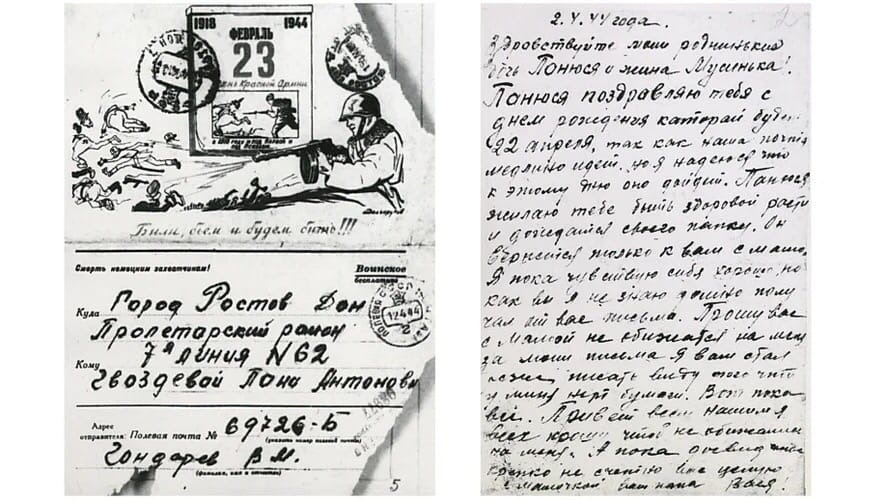 1918
1944
ФЕВРАЛЬ
23
День Красной Армии
Били, бьем и будем бить!!!
Смерть немецким захватчикам!
Воинское
бесплатное
Куда Город Ростов Дон
Пролетарский район
7я линия N 62
Кому
Гвоздевой Пана Антоновн
12.4.44
Адрес
отправителя: Полевая почта № 69726-Б
(указать номер полевой почты)
Гондарев В.М.
(фамилия, имя и отчество)
5
2
2.4.44 года.
Здровствуйте мои роднинькие
дочь Панюся и жина Мусинька!
Панюся поздравляю тебя с
днем рождения каторай будет
22 апреля, так как наша почта
медлино идет но я надеюся что
к этому дню оно дойдет. Панюся
жилаю тебе быть здоровой расти
и дожедатся своего папку. Он
вернется только к вам с мамо
Я пока чувствую себя хорошо, но
как вы я не знаю давно полу
чал от вас письма. Прошу вас
с мамой не обижатся на меня
за мои письма Я вам стал
писать виду того что
у миня нет бумаги. Вот пока
все. Привет всем нашим я
всех прошу чтоб не обижались
на меня. А пока досвидания
крепко не счетно вас целую
с мамочкой ваш папа Вася!